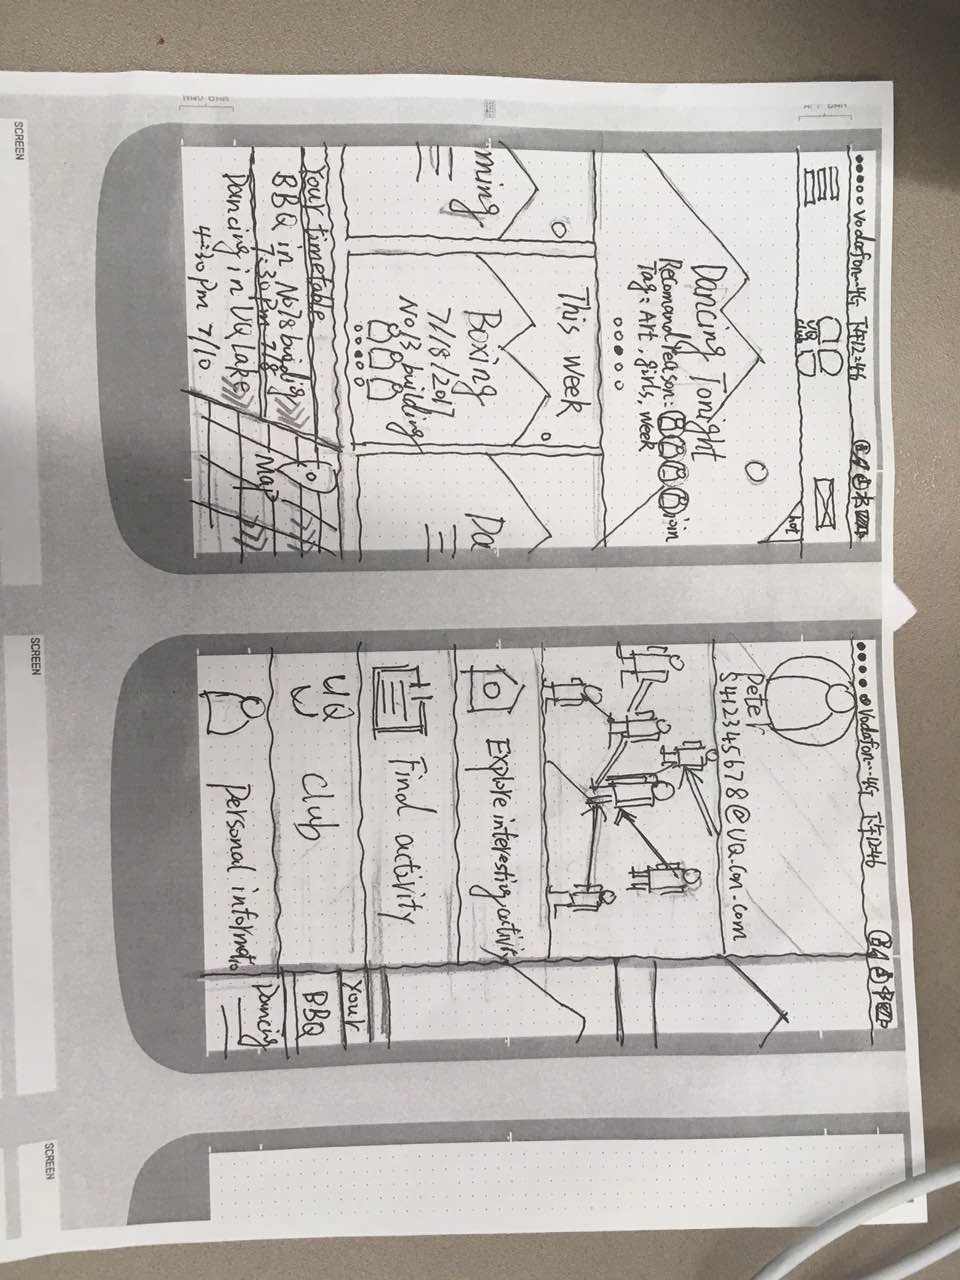 Vodafon...4G 下午12:46
UQ
club
hot
Dancing Tonight
Recomand reason:
join
Tag: Art, girls, week
This week
ming
Boxing
7/18/2017
No 13 building
Da
Your timetable
BBQ in No78 buildig
7:30 pm 7/8
Dancing in UQ lake
4:30 pm 7/10
Map
Vodafon...4G 下午1246
Peter
S412345678@UQ.con.com
Explore interesting activity
Find activity
UQ Club
Personal informatio
Your
BBQ
Dancing
SCREEN
SCREEN
SCREEN